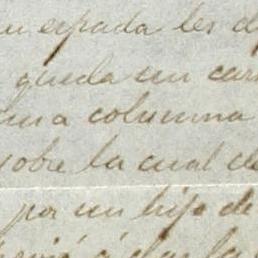 su espada les d
queda un car
una columna
sobre la cual de
por un hijo de
á dar la